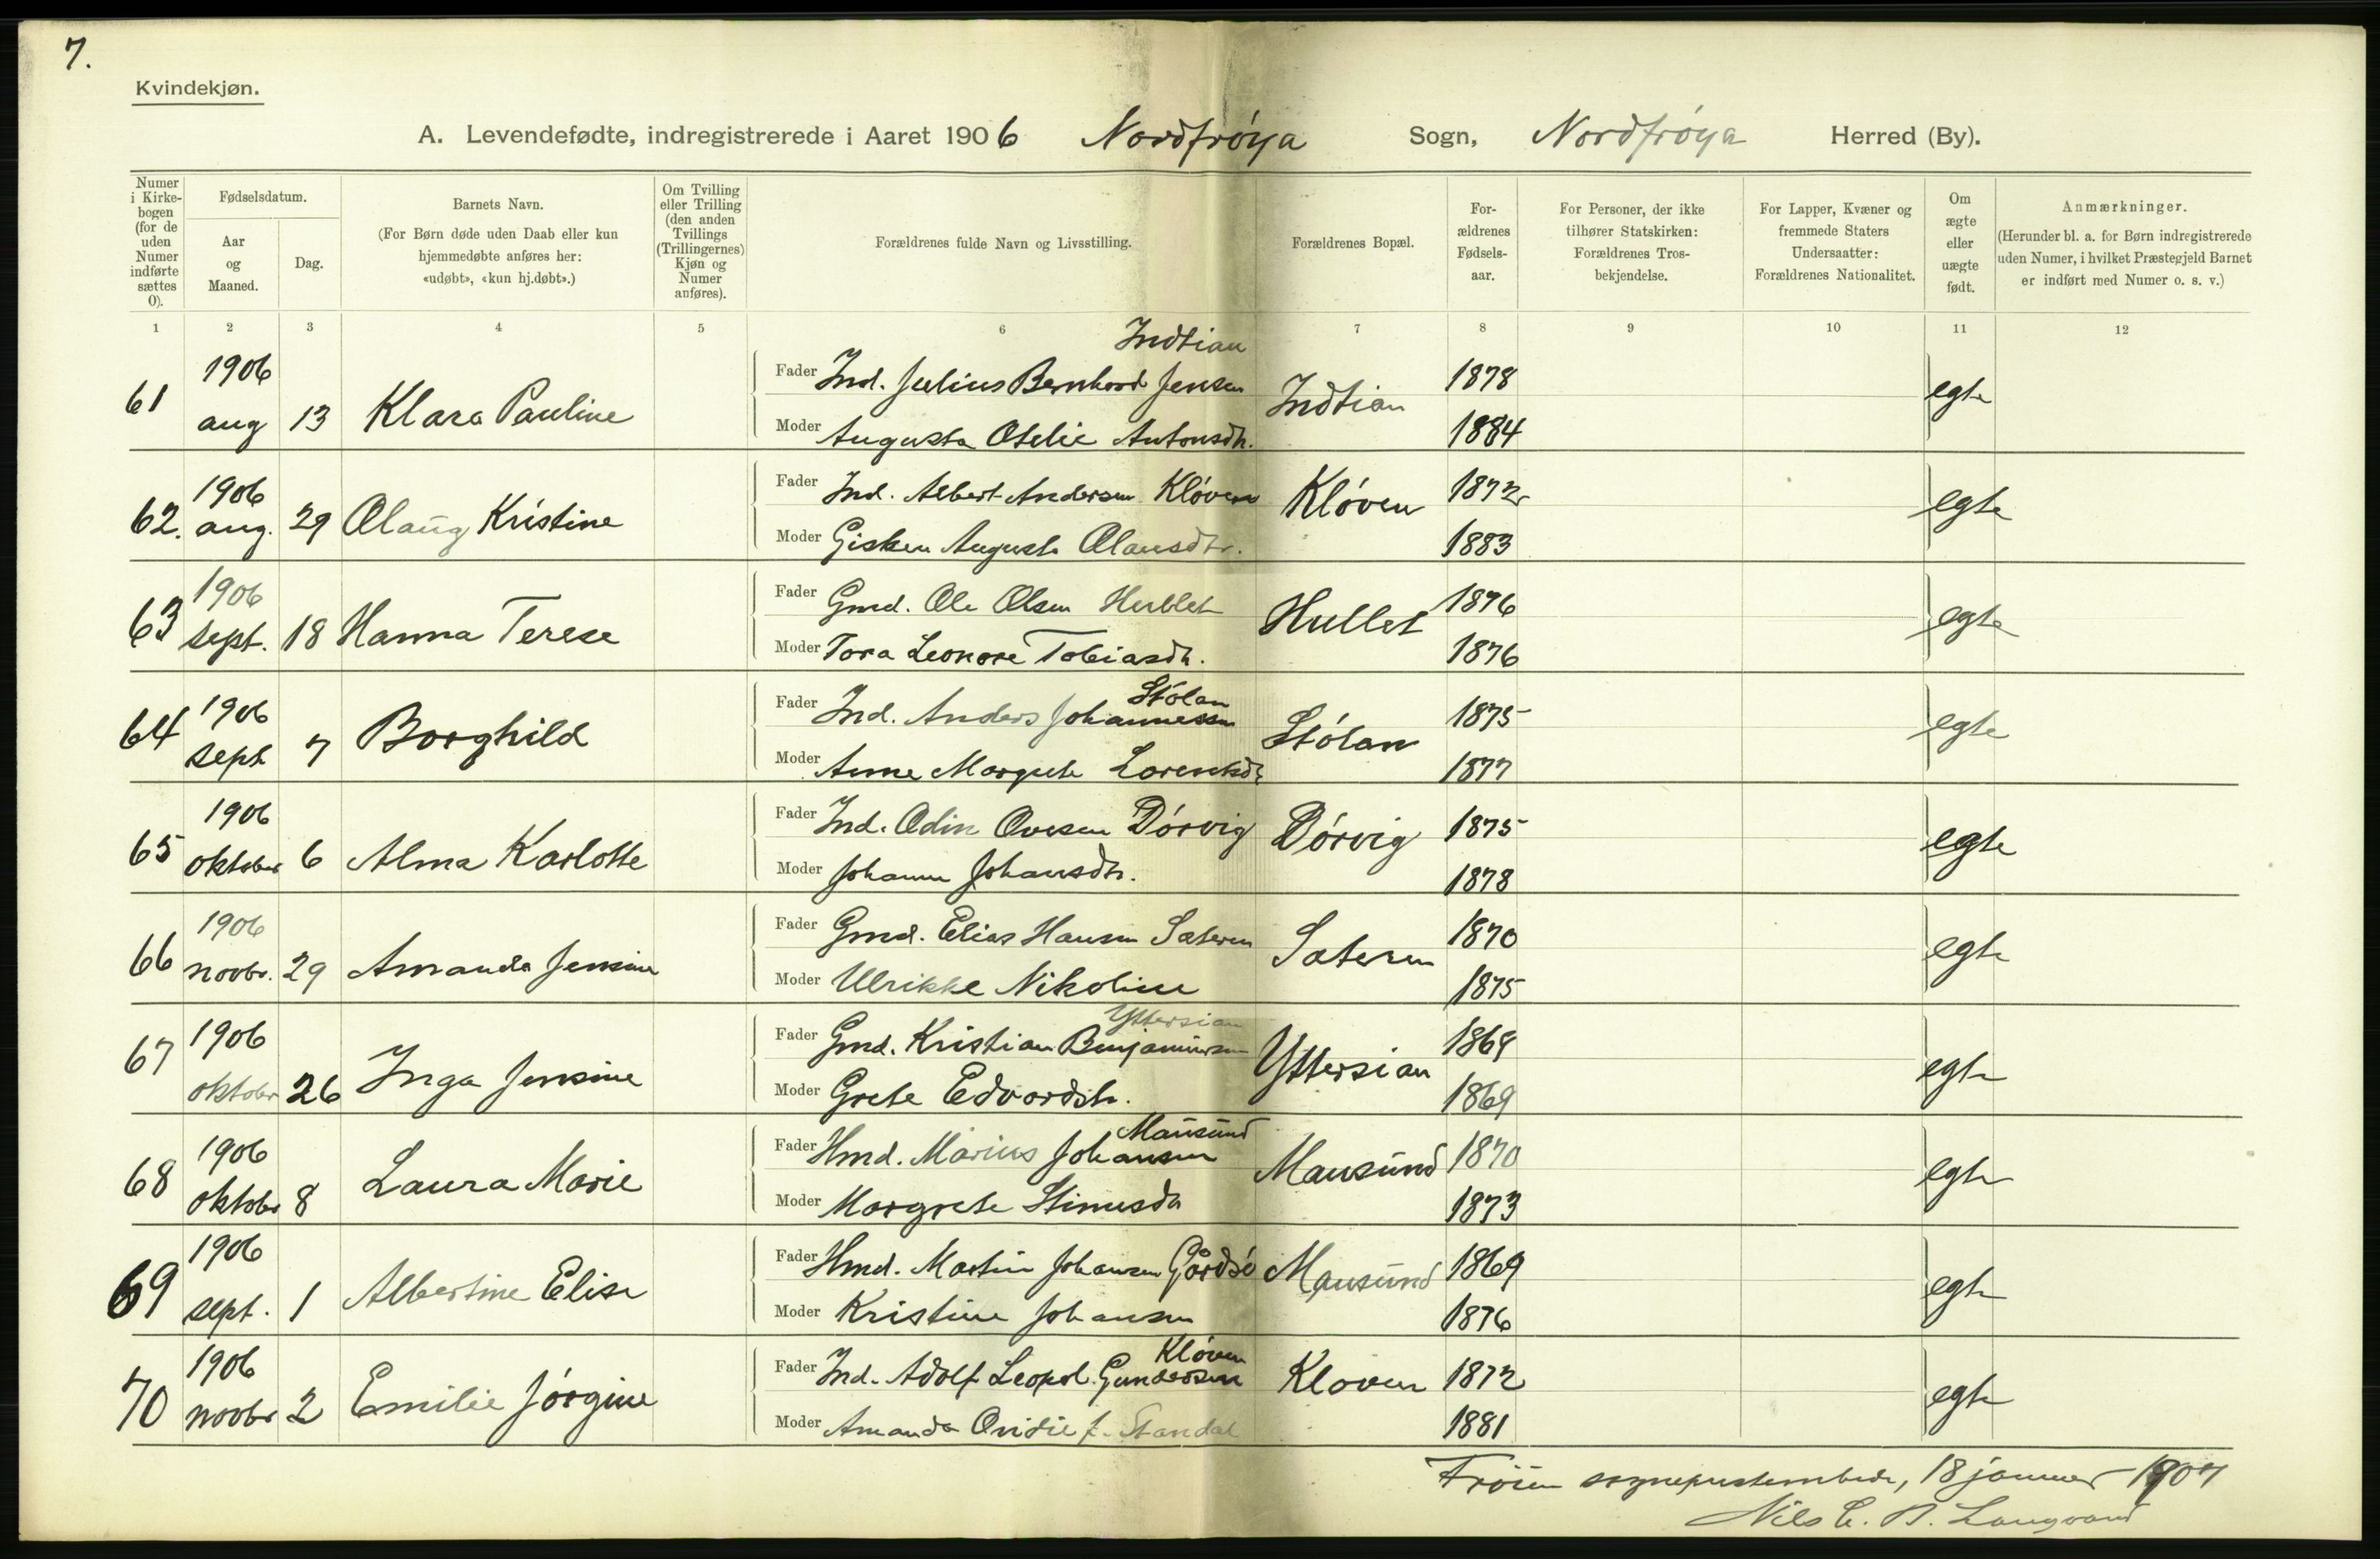 7.
Kvindekjøn.
A. Levendefødte, indregistrerede i Aaret 1906 Nordfrøya Sogn, Nordfrøya Herred (By).
Numer i Kirke-bogen (for de uden Numer indførte sættes 0).
Fødselsdatum.
Aar og Maaned.
Dag.
Barnets Navn.
(For Børn døde uden Daab eller kun hjemmedøbte anføres her: «udøbt», «kun hj.døbt».)
Om Tvilling eller Trilling (den anden Tvillings (Trillingernes) Kjøn og Numer anføres).
Forældrenes fulde Navn og Livsstilling.
Forældrenes Bopæl.
For-ældrenes Fødsels-aar.
For Personer, der ikke tilhører Statskirken: Forældrenes Tros-bekjendelse.
For Lapper, Kvæner og fremmede Staters Undersaatter: Forældrenes Nationalitet.
Om ægte eller uægte født.
Anmærkninger.
(Herunder bl. a. for Børn indregistrerede uden Numer, i hvilket Præstegjeld Barnet er indført med Numer o. s. v.)
1 2 3 4 5 6 7 8 9 10 11 12
61 1906 aug 13 Klara Pauline
Indtian
Fader Ind. Julius Bernhard Jensen Indtian 1878 egte
Moder Augusta Otelie Antonsdtr. 1884
62. 1906 aug. 29 Olaug Kristine
Fader Ind. Albert Andersen Kløven Kløven 1872 egte
Moder Gisken Augusta Olausdtr. 1883
63 1906 sept. 18 Hanna Terese
Fader Gmd. Ole Olsen Hullet Hullet 1876 egte
Moder Tora Leonore Tobiasdtr. 1876
64 1906 sept 7 Borghild
Stølan
Fader Ind. Anders Johannessen Stølan 1875 egte
Moder Anne Margrete Lorentsdtr 1877
65 1906 oktober 6 Alma Karlotte
Fader Ind. Odin Ovesen Dørvig Dørvig 1875 egte
Moder Johanna Johansdtr. 1878
66 1906 novbr. 29 Amanda Jensine
Fader Gmd. Elias Hansen Sæteren Sæteren 1870 egte
Moder Ulrikke Nikoline 1875
67 1906 oktober 26 Inga Jensine
Yttersian
Fader Gmd. Kristian Benjaminsen Yttersian 1869 egte
Moder Grete Edvardsdtr. 1869
68 1906 oktober 8 Laura Marie
Mausund
Fader Hmd. Marius Johansen Mausund 1870 egte
Moder Margrete Stinusdtr 1873
69 1906 sept. 1 Albertine Elise
Fader Hmd. Martin Johansen Gårdsø Mausund 1869 egte
Moder Kristine Johansen 1876
70 1906 novbr 2 Emilie Jørgine
Kløven
Fader Ind. Adolf Leopol. Gundersen Kløven 1872 egte
Moder Amanda Ovidie f. Standal 1881
Frøien sogneprestembede, 18 januar 1907
Nils